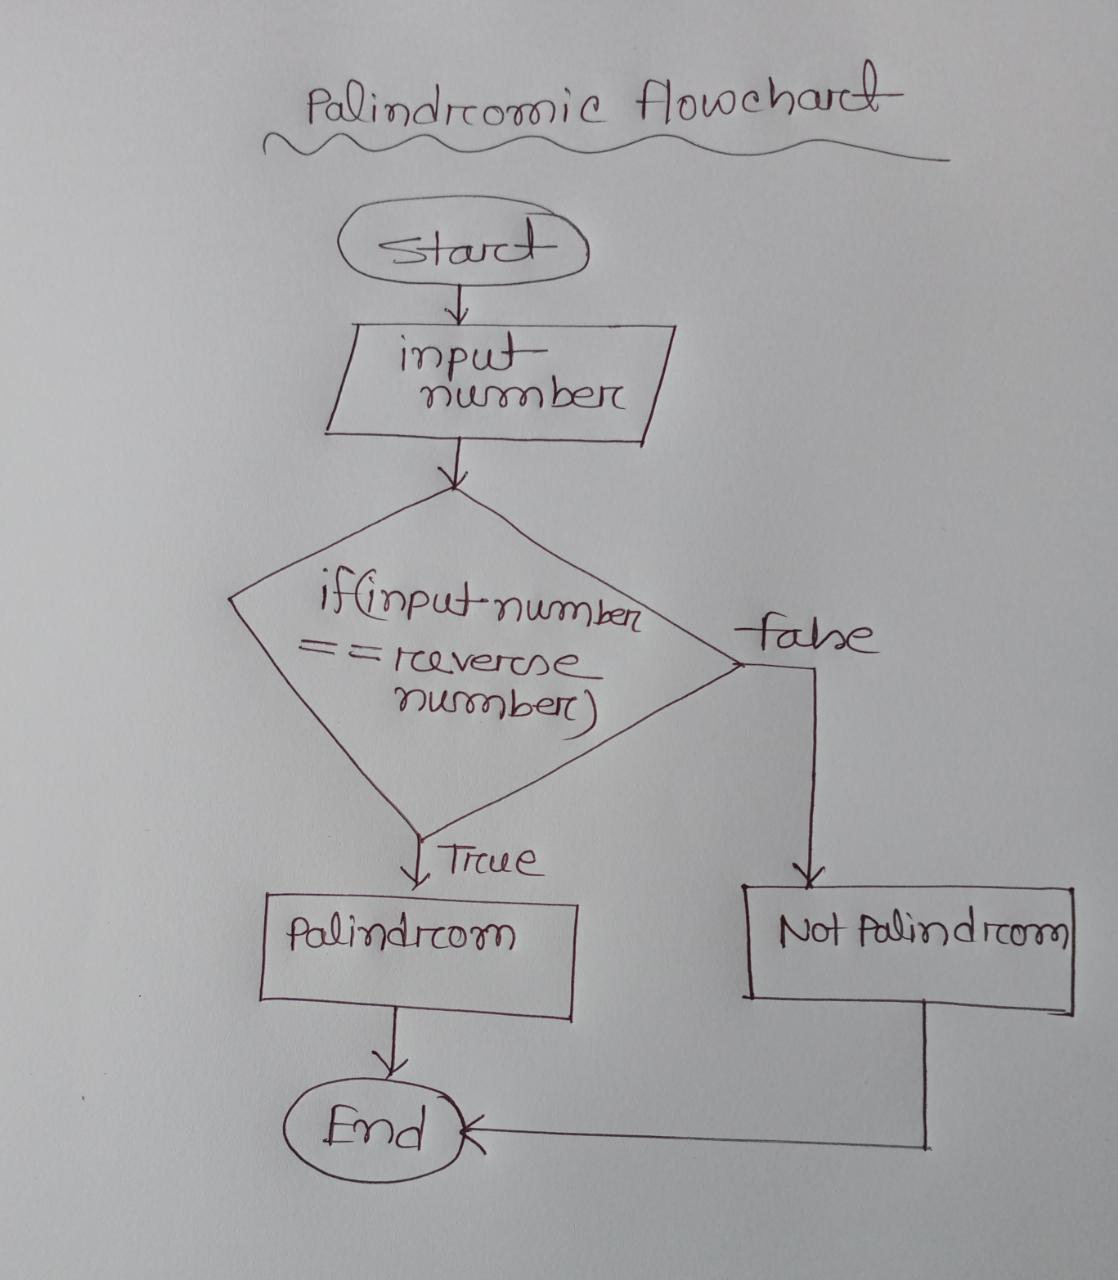 Palindromic flowchart
Start
input
number
if(input number
== reverse
number)
false
True
Palindrom
Not Palindrom
End